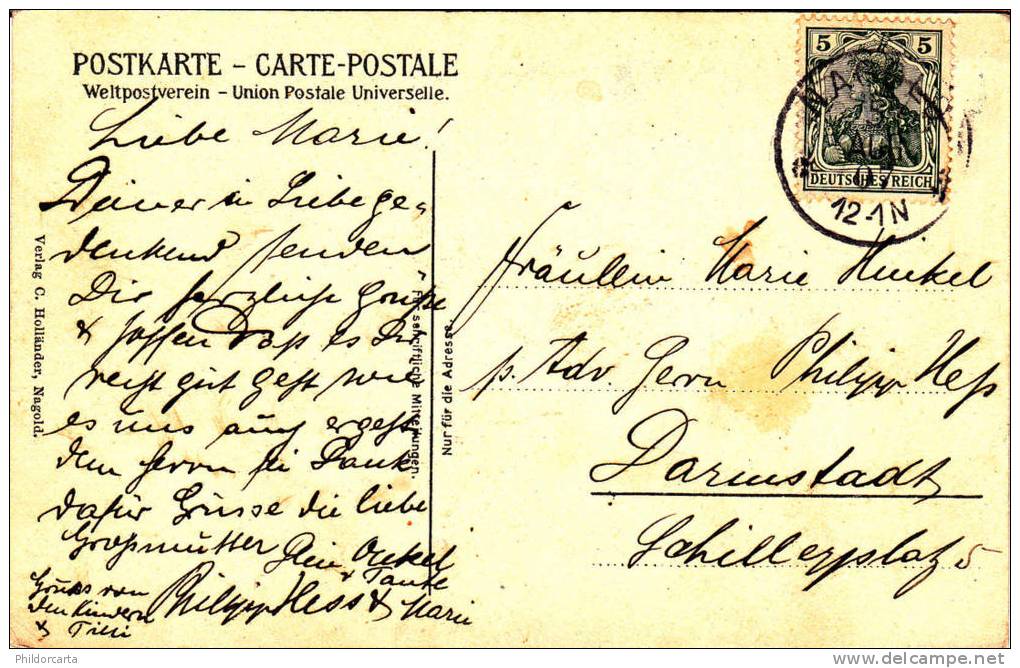 POSTKARTE – CARTE-POSTALE
Weltpostverein – Union Postale Universelle.
Liebe Marie!
Deiner in Liebe ge-
denkend senden
Dir herzliche Grüße
& hoffen daß es Dir
recht gut geht wie
es uns auch ergeht
dem Herrn sei Dank
dafür Grüsse die liebe
Grossmutter Dein Onkel
& Tante
Philipp Hess & Marie
Gruss von
den Kindern
& Tilli
Verlag C. Holländer, Nagold.
Für schriftliche Mitteilungen.
Nur für die Adresse.
5 5
DEUTSCHES REICH
AUG
07
12-1N
Fräullein Marie Henkel
p. Adr. Herrn Philipp Heß
Darmstadt
Schillerplatz 5
Phildorcarta
delcampe.net